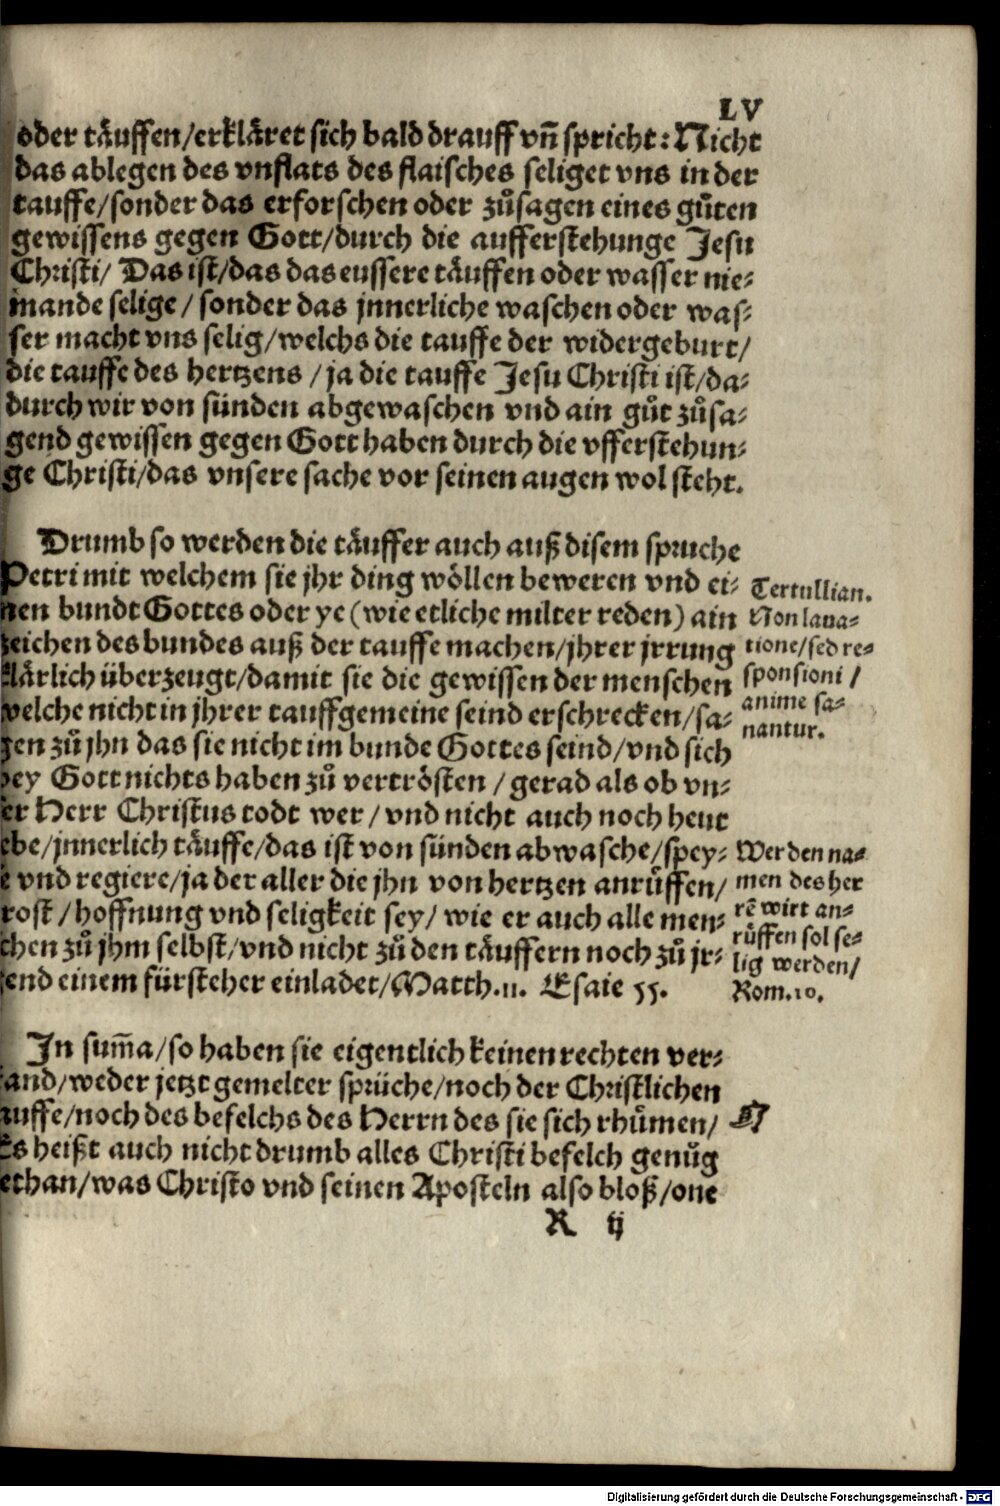 LV
oder täuffen/erkläret sich bald drauff vnñ spricht: Nicht
das ablegen des vnflats des flaisches seliget vns in der
tauffe/sonder das erforschen oder zůsagen eines gůten
gewissens gegen Gott/durch die aufferstehunge Jesu
Christi/ Das ist/das das eussere täuffen oder wasser nie-
mande selige/ sonder das jnnerliche waschen oder was-
ser macht vns selig/welchs die tauffe der widergeburt/
die tauffe des hertzens /ja die tauffe Jesu Christi ist/da-
durch wir von sünden abgewaschen vnd ain gůt zůsa-
gend gewissen gegen Gott haben durch die vfferstehun-
ge Christi/das vnsere sache vor seinen augen wol steht.
Drumb so werden die täuffer auch auß disem spruche
Petri mit welchem sie jhr ding wöllen beweren vnd ei-
nen bundt Gottes oder ye (wie etliche milter reden) ain
zeichen des bundes auß der tauffe machen/jhrer jrrung
klärlich überzeugt/damit sie die gewissen der menschen
welche nicht in jhrer tauffgemeine seind erschrecken/sa-
gen zů jhn das sie nicht im bunde Gottes seind/vnd sich
bey Gott nichts haben zů vertrösten /gerad als ob vn-
er Herr Christus todt wer/ vnd nicht auch noch heut
ebe/jnnerlich täuffe/das ist von sünden abwasche/spey-
e vnd regiere/ja der aller die jhn von hertzen anrůffen/
rost /hoffnung vnd seligkeit sey/ wie er auch alle men-
chen zů jhm selbst/vnd nicht zů den täuffern noch zů jr-
end einem fürsteher einladet/Matth.11. Esaie 55.
Tertullian.
Non laua-
tione/sed re-
sponsioni/
anime sa-
nantur.
Wer den na-
men des her
rẽ wirt an-
rüffen sol se-
lig werden/
Rom.10.
In sum̃a/so haben sie eigentlich keinen rechten ver-
tand/weder jetzt gemelter sprüche/noch der Christlichen
auffe/noch des befelchs des Herrn des sie sich rhůmen/
Es heißt auch nicht drumb alles Christi befelch genůg
ethan/was Christo vnd seinen Aposteln also bloß/one
R ij
Digitalisierung gefördert durch die Deutsche Forschungsgemeinschaft - DFG